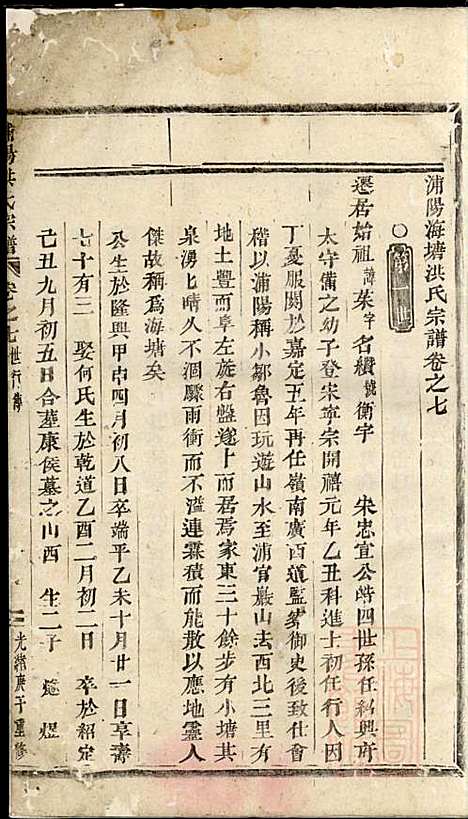 浦陽海塘洪氏宗譜卷之七
遷居始祖諱荣字名纘號衡宇　宋忠宣公皓四世孫任紹興府
太守備之幼子登宋寧宗開禧元年乙丑科進士初任行人因
丁憂服闋於嘉定五年再任嶺南廣西道監察御史後致仕會
稽以浦陽稱小鄒魯因玩遊山水至浦官巖山去西北三里有
地土豐而阜左旋右盤遂卜而居焉家東三十餘步有小塘其
泉湧匕晴久不涸驟雨衝而不溢連霖積而能散以應地靈人
傑故稱爲海塘矣
公生於隆興甲申四月初八日卒端平乙未十月廿一日享壽
七十有三　娶何氏生於乾道乙酉二月初二日　卒於紹定
己丑九月初五日合葬康侯墓之山西　生二子　煜
陽洪氏宗譜　卷之七　世行傳　光緒庚子重修